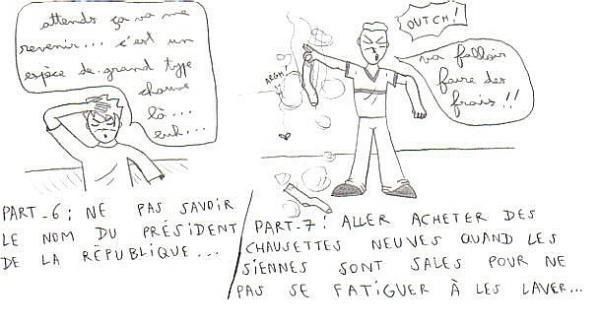 attends ça va me
revenir... c'est un
espèce de grand type
chauve
là...
euh...
PART_6: NE PAS SAVOIR
LE NOM DU PRÉSIDENT
DE LA RÉPUBLIQUE...
OUTCH!
va falloir
faire des
frais!!
ARGH!
PART_7: ALLER ACHETER DES
CHAUSETTES NEUVES QUAND LES
SIENNES SONT SALES POUR NE
PAS SE FATIGUER À LES LAVER...